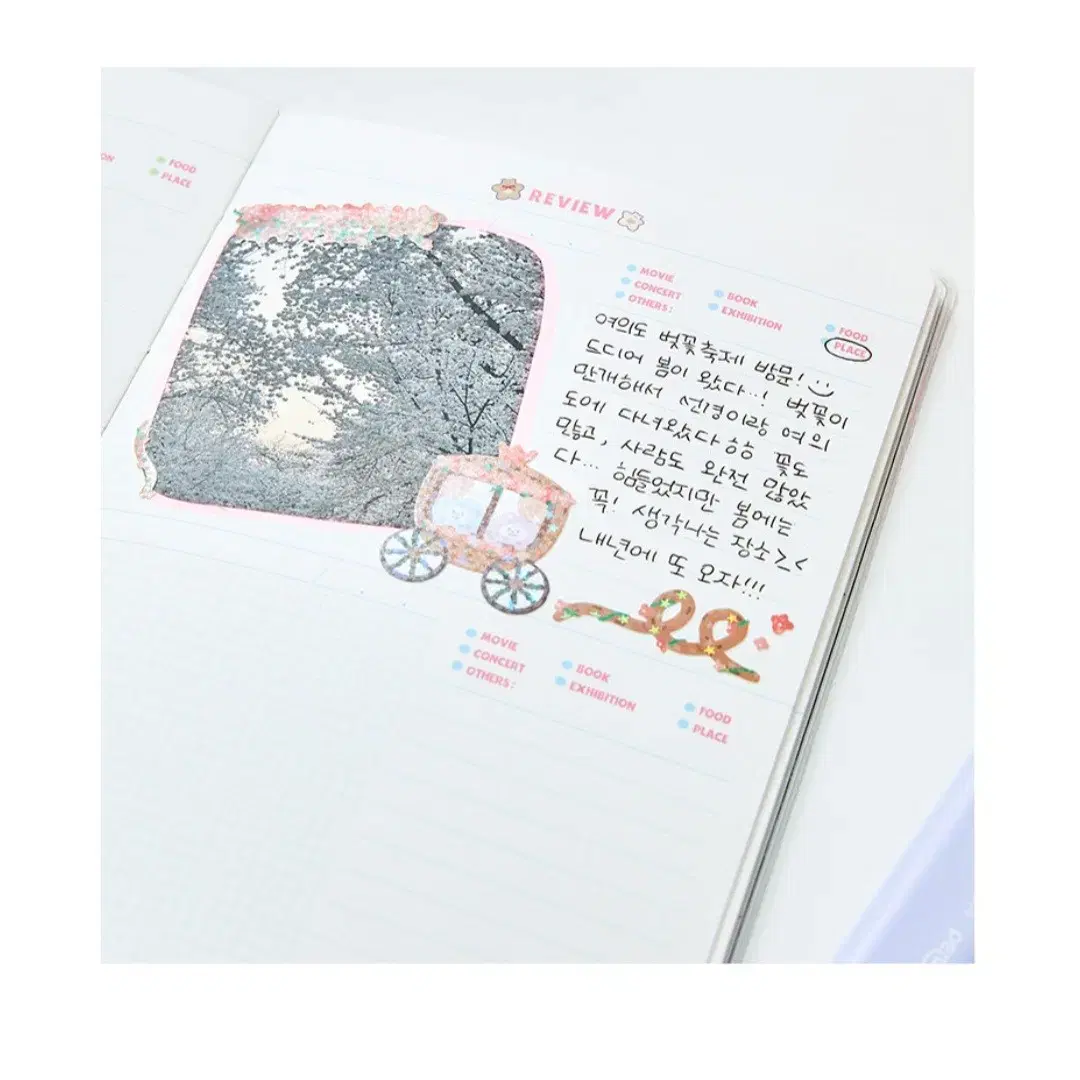 FOOD
PLACE
REVIEW
MOVIE
CONCERT
OTHERS:
BOOK
EXHIBITION
FOOD
PLACE
여의도 벚꽃축제 방문!
드디어 봄이 왔다...! 벚꽃이
만개해서 선경이랑 여의
도에 다녀왔다ㅎㅎ 꽃도
많고, 사람도 완전 많았
다... 힘들었지만 봄에는
꼭! 생각나는 장소><
내년에 또 오자!!!
MOVIE
CONCERT
OTHERS:
BOOK
EXHIBITION
FOOD
PLACE